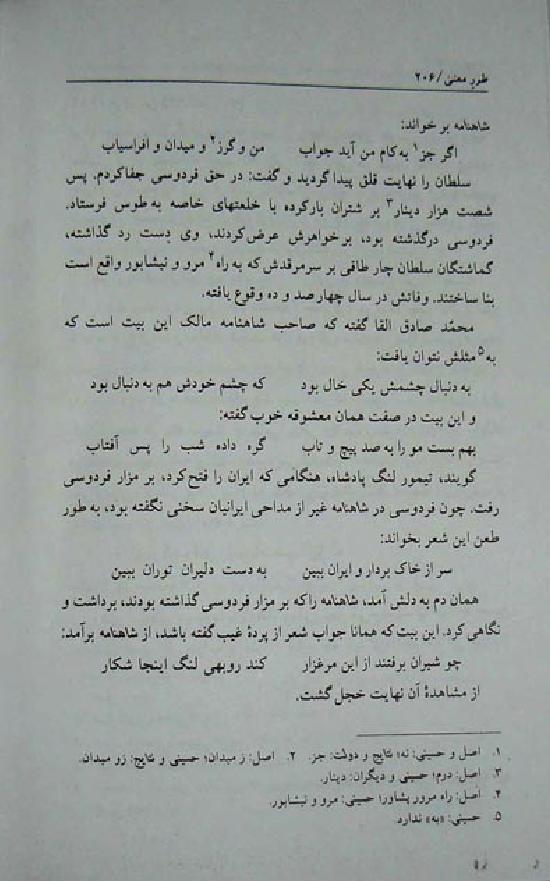 طورِ معنی / ۲۰۶
شاهنامه برخواند:
اگر جز۱ به کام من آید جواب من و گرز۲ و میدان و افراسیاب
سلطان را نهایت قلق پیدا گردید و گفت: در حق فردوسی جفا کردم. پس
شصت هزار دینار۳ بر شتران بار کرده با خلعتهای خاصه به طوس فرستاد.
فردوسی درگذشته بود، بر خواهرش عرض کردند، وی دست رد گذاشته،
گماشتگان سلطان چار طاقی بر سر مرقدش که به راه۴ مرو و نیشابور واقع است
بنا ساختند. وفاتش در سال چهارصد و ده وقوع یافته.
محمّد صادق القا گفته که صاحب شاهنامه مالک این بیت است که
به۵ مثلش نتوان یافت:
به دنبال چشمش یکی خال بود که چشم خودش هم به دنبال بود
و این بیت در صفت همان معشوقه خوب گفته:
بهم بست مو را به صد پیچ و تاب گره داده شب را پس آفتاب
گویند، تیمور لنگ پادشاه، هنگامی که ایران را فتح کرد، بر مزار فردوسی
رفت. چون فردوسی در شاهنامه غیر از مداحی ایرانیان سخنی نگفته بود، به طور
طعن این شعر بخواند:
سر از خاک بردار و ایران ببین به دست دلیران توران ببین
همان دم به دلش آمد، شاهنامه را که بر مزار فردوسی گذاشته بودند، برداشت و
نگاهی کرد. این بیت که همانا جواب شعر از پردهٔ غیب گفته باشد، از شاهنامه برآمد:
چو شیران برفتند از این مرغزار کند روبهی لنگ اینجا شکار
از مشاهدهٔ آن نهایت خجل گشت.
۱. اصل و حسینی: نه؛ نتایج و دولت: جز. ۲. اصل: ز میدان؛ حسینی و نتایج: زو میدان.
۳. اصل: دوم؛ حسینی و دیگران: دینار.
۴. اصل: راه مرور پشاور؛ حسینی: مرو و نیشابور.
۵. حسینی: «به» ندارد.